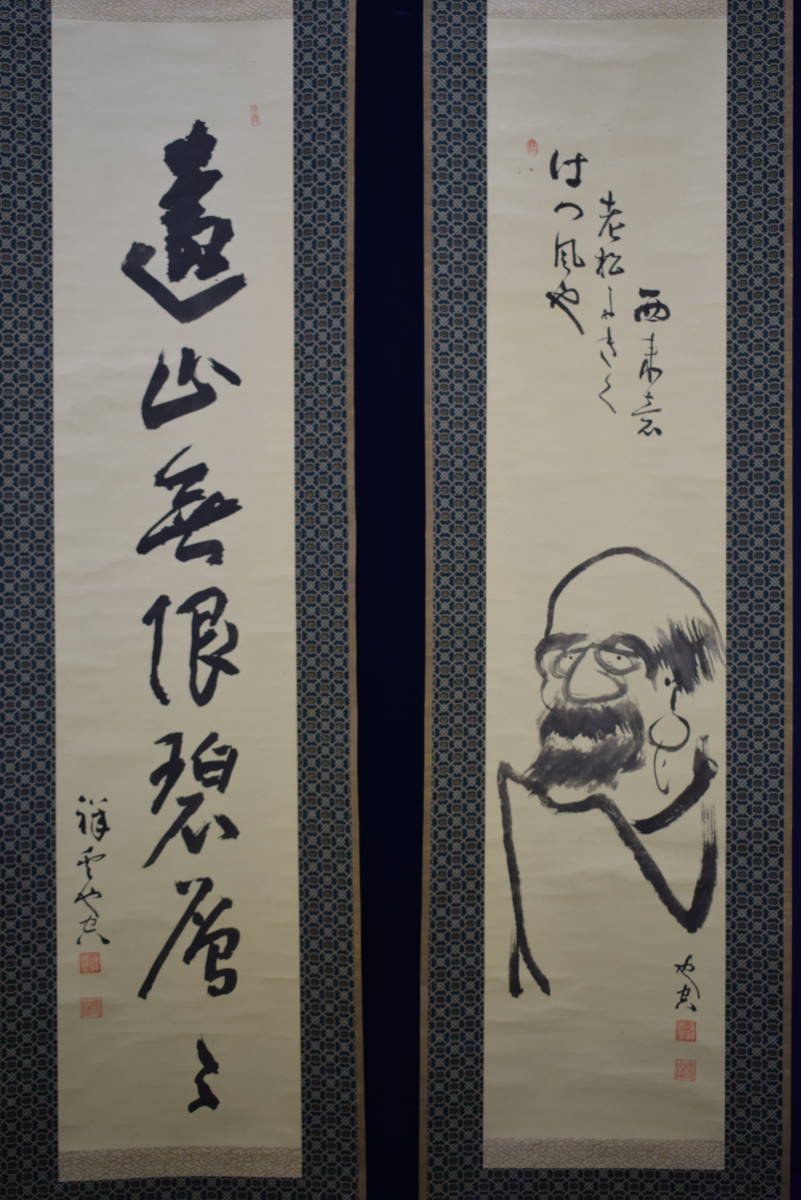 はつ風や
老松にきく
西来意
遠山無限碧層々
祥雲